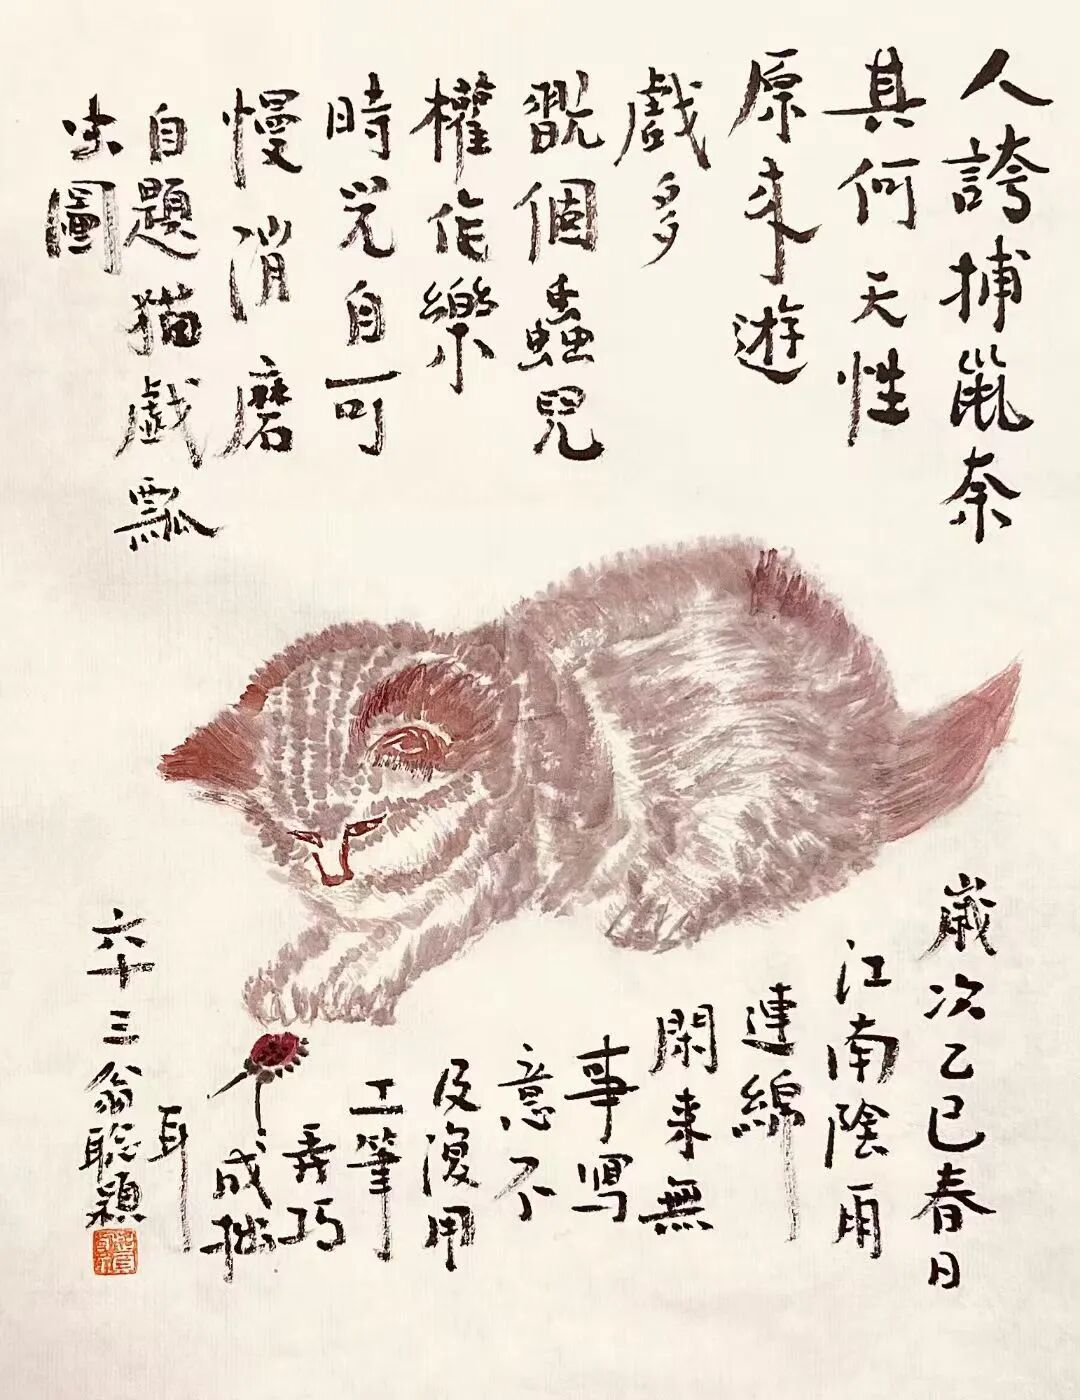 人誇捕鼠奈
其何天性
原来遊
戲多
翫個蟲兒
權作樂
時光自可
慢消磨
自題猫戲瓢
虫圖
歲次乙巳春日
江南陰雨
連綿
閑来無
事寫
意不
及復用
工筆
弄巧
成拙
耳
六十三翁聪穎